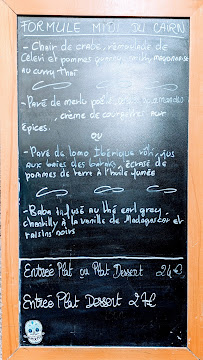 FORMULE MIDI DU CAIRN
- Chair de crabe, rémoulade de
Céleri et pommes mayonnaise
au curry Thaï
- Pavé de merlu poêlé
, crème de courgettes aux
épices.
OU
- Pavé de lomo Ibérique rôti, jus
aux baies des , écrasé de
pommes de terre à l'huile fumée
- Baba infusé au thé earl grey,
chantilly à la vanille de Madagascar et
raisins noirs
Entrée Plat ou Plat Dessert 24€
Entrée Plat Dessert 27€